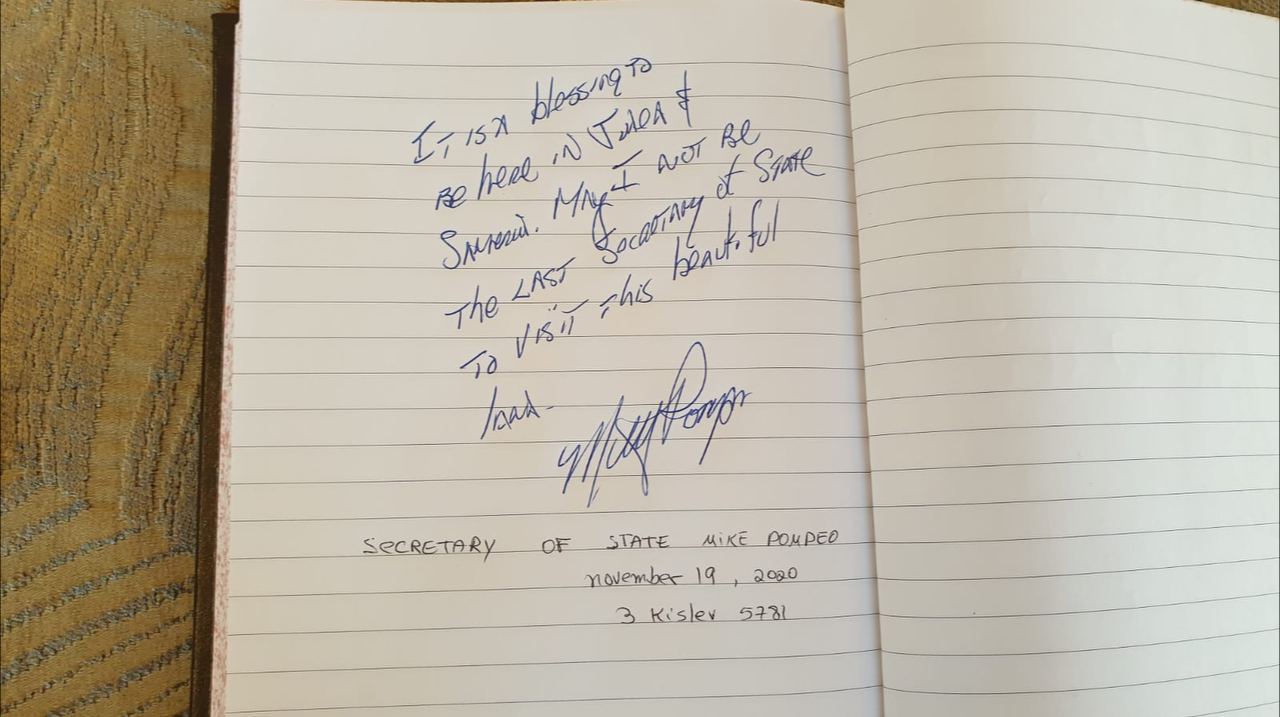 IT IS A blessing TO
BE here IN Judea &
Samaria. MAy I NOT BE
The LAST Secretary of State
TO VISIT This beautiful
land.
Mike Pompeo
SECRETARY OF STATE MIKE POMPEO
november 19, 2020
3 Kislev 5781